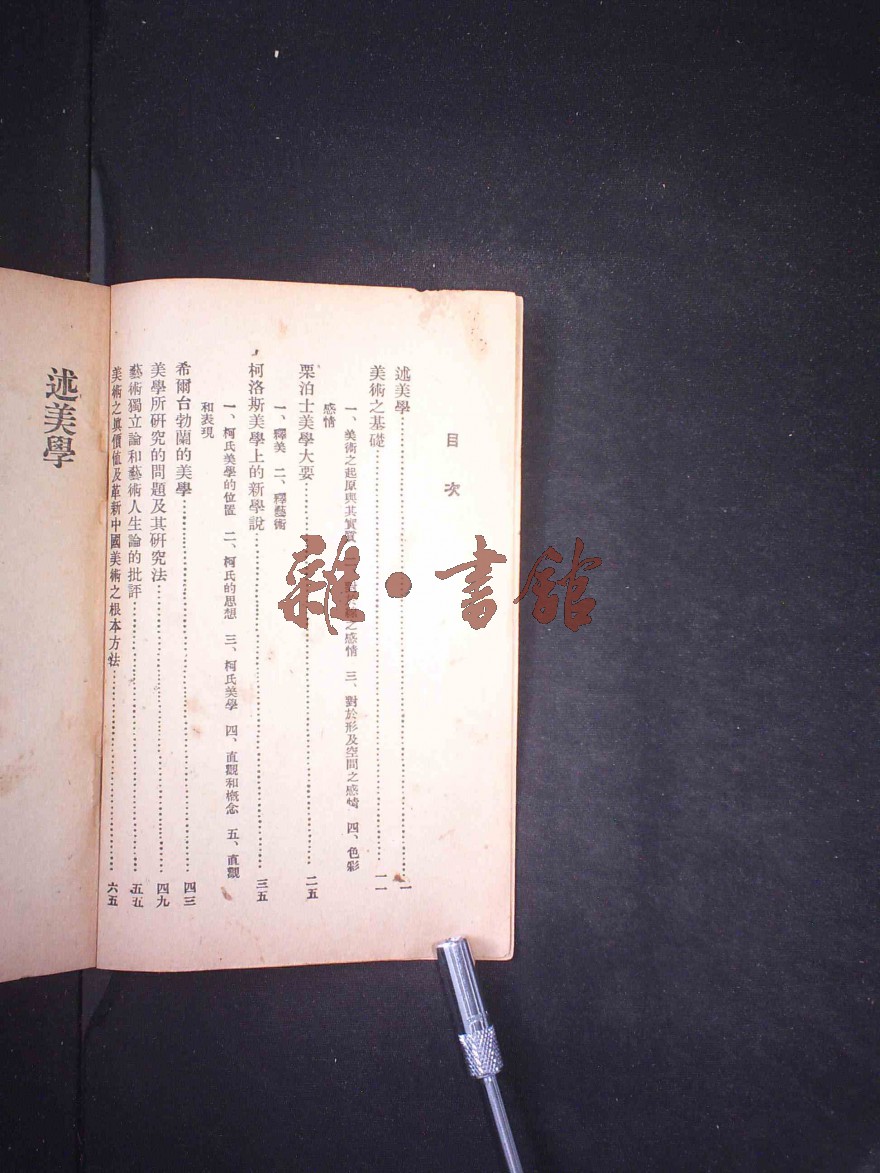 目次
述美學⋯⋯⋯⋯⋯⋯⋯⋯一
美術之基礎⋯⋯⋯⋯⋯⋯⋯⋯一一
一、美術之起原與其實質 之感情 三、對於形及空間之感情 四、色彩
感情
栗泊士美學大要⋯⋯⋯⋯⋯⋯⋯⋯二五
一、釋美 二、釋藝術
柯洛斯美學上的新學說⋯⋯⋯⋯⋯⋯⋯⋯三五
一、柯氏美學的位置 二、柯氏的思想 三、柯氏美學 四、直觀和槪念 五、直觀
和表現
希爾台勃蘭的美學⋯⋯⋯⋯⋯⋯⋯⋯四三
美學所研究的問題及其研究法⋯⋯⋯⋯⋯⋯⋯⋯四九
藝術獨立論和藝術人生論的批評⋯⋯⋯⋯⋯⋯⋯⋯五五
美術之眞價値及革新中國美術之根本方法⋯⋯⋯⋯⋯⋯⋯⋯六五
述美學
雜·書館